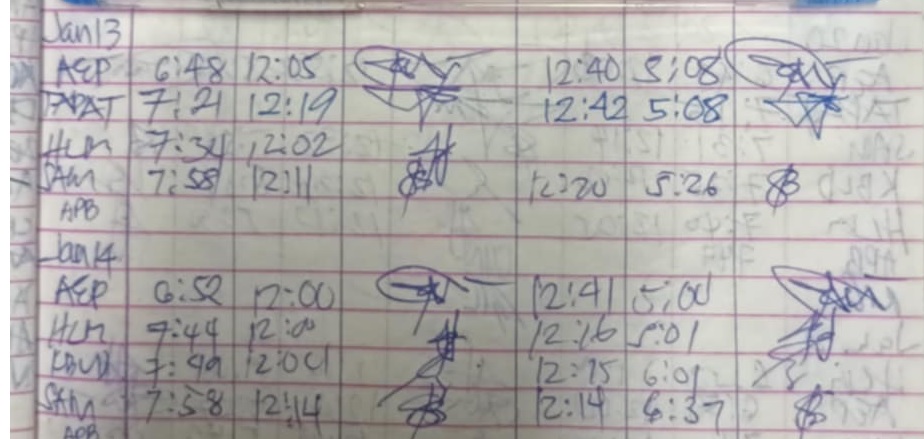 Jan 13
AEP 6:48 12:05 12:40 5:08
TAPAT 7:21 12:19 12:42 5:08
HLM 7:34 12:02
SAM 7:58 12:11 12:20 5:26
APB
Jan 14
AEP 6:52 12:00 12:41 5:00
HLM 7:44 12:00 12:16 5:01
KBLD 7:49 12:04 12:15 6:01
SAM 7:58 12:14 12:14 6:37
APB